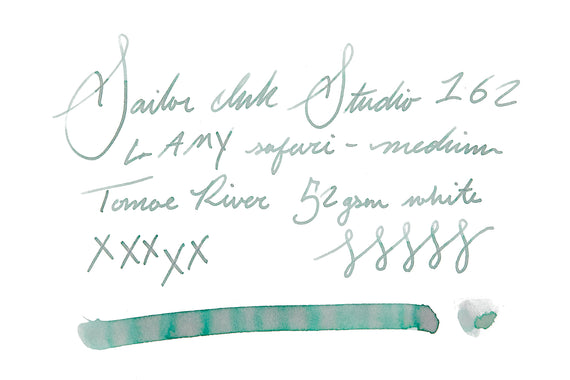 Sailor Ink Studio 162
LAMY safari - medium
Tomoe River 52gsm white
xxxxx